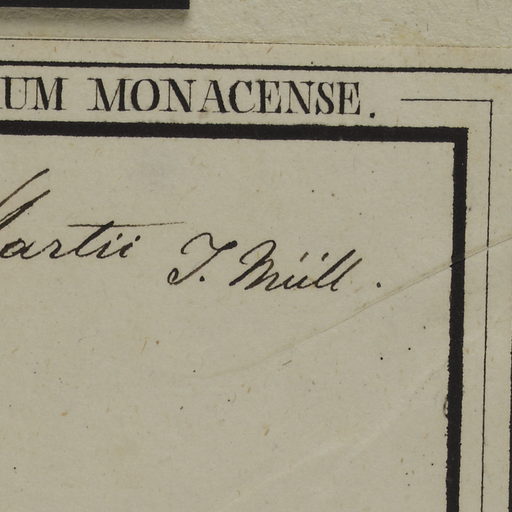 UM MONACENSE.
Martii J. Müll.